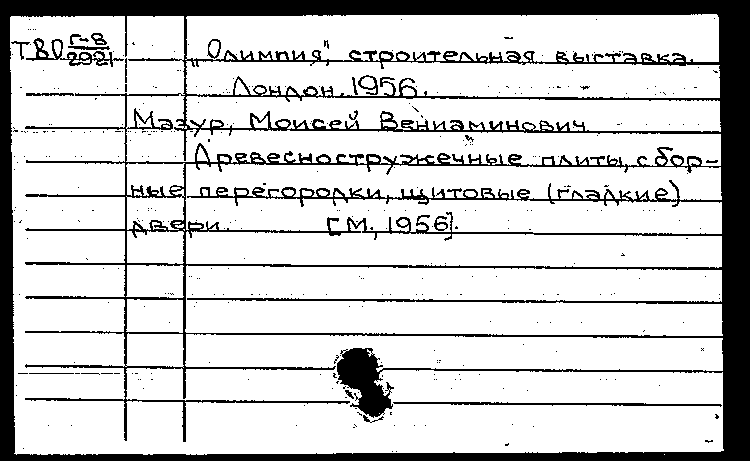 ТВО Г-В/2921 „Олимпия", строительная выставка.
Лондон. 1956.
Мазур, Моисей Вениаминович
Древесностружечные плиты, сбор-
ные перегородки, щитовые (гладкие)
двери. [М., 1956].